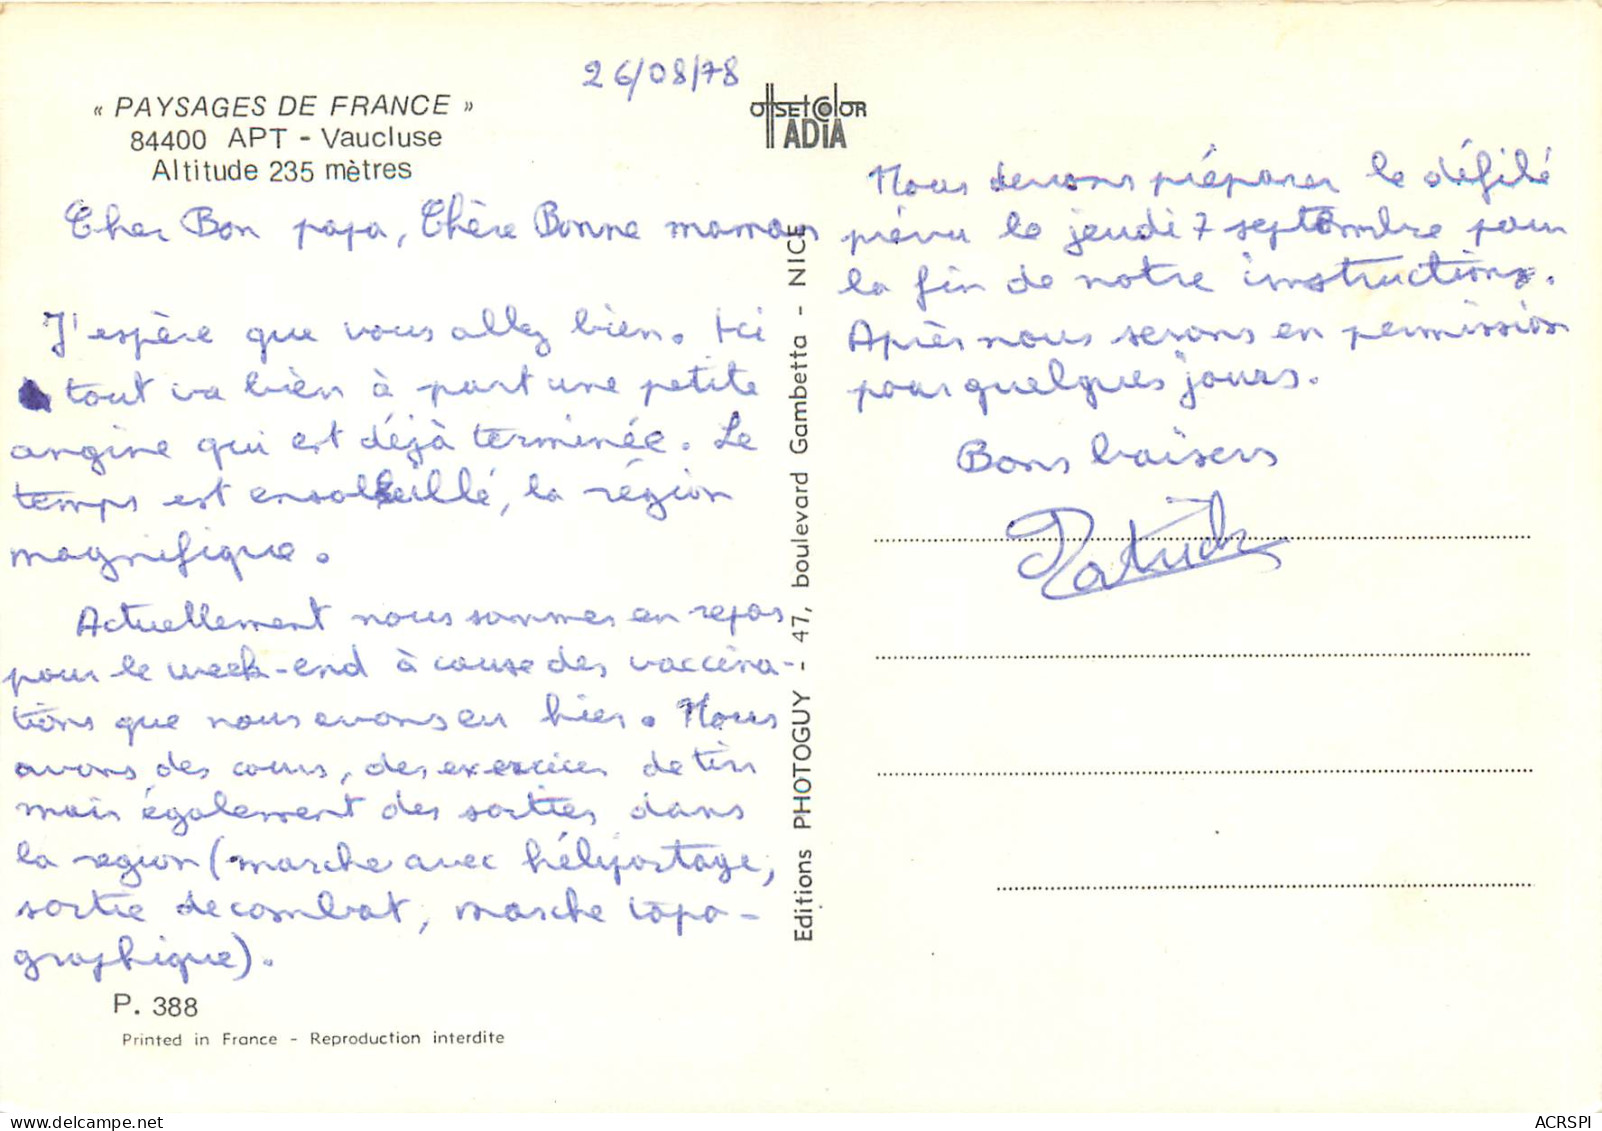 26/08/78
« PAYSAGES DE FRANCE »
84400 APT - Vaucluse
Altitude 235 mètres
OffSEtColOR
ADiA
Cher Bon papa, Chère Bonne maman
J'espère que vous allez bien. Ici
tout va bien à part une petite
angine qui est déjà terminée. Le
temps est ensoleillé, la région
magnifique.
Actuellement nous sommes en repos
pour le week-end à cause des vaccina-
tions que nous avons eu hier. Nous
avons des cours, des exercices de tir
mais également des sorties dans
la region (marche avec héliportage,
sortie de combat, marche topo-
graphique).
P. 388
Printed in France - Reproduction interdite
Editions PHOTOGUY - 47, boulevard Gambetta - NICE
Nous devrons préparer le défilé
prévu le jeudi 7 septembre pour
la fin de notre instructions.
Après nous serons en permission
pour quelques jours.
Bons baisers
Patrick
ACRSPI